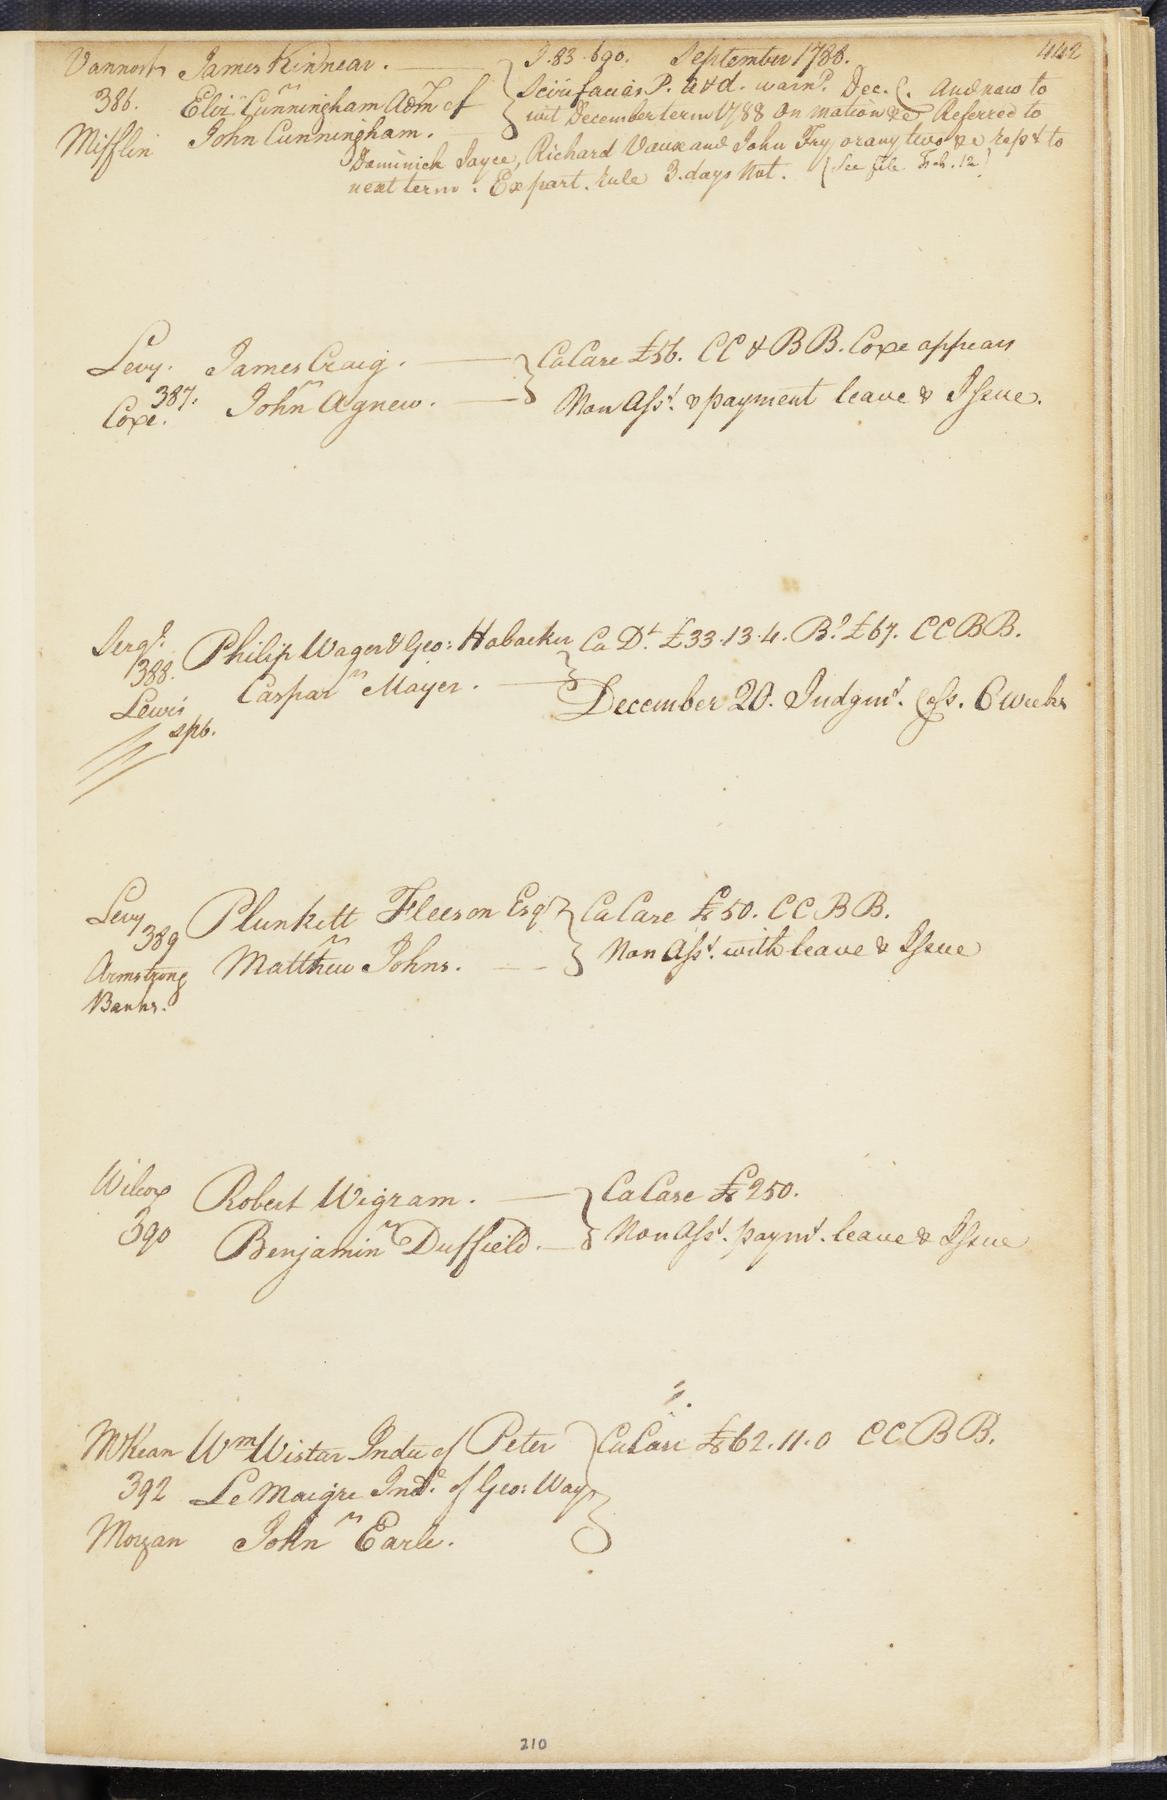 J. 83. 690. September 1788. 442
Vannost James Kinnear.
386. Eliz. Cunningham Adm. of
Mifflin John Cunningham.
Scire facias P. and d. warnd. Dec. C. And now to
wit December term 1788 On motion &c Referred to
Dominick Joyce, Richard Vaux and John Fry or any two &c repst to
next term. Ex part. rule 3. days Not. (See file Feb. 12)
Levy. James Craig.
387. vn
Coxe. John Agnew.
Ca Case £56. CC & BB. Coxe appears
Non Asst. & payment leave & Issue.
Sergt. Philip Wager & Geo: Habacker
388. vn
Lewis Caspar Mayer.
spb.
Ca Dt. £33.13.4. Bl. £67. CC BB.
December 20. Judgmt. Cess. 6 weeks
Levy Plunkett Fleeson Esqr
389 vn
Armstrong Matthew Johns.
Banks.
Ca Case £50. CC BB.
Non Asst. with leave & Issue
Wilcox Robert Wigram.
390 vn
Benjamin Duffield.
Ca Case £250.
Non Asst. paymt. leave & Issue
McKean Wm Wistar Inde of Peter
392 Le Maigre Inde. of Geo: Way
Morgan John vn Earle.
Ca Case £62.11.0 CC BB.
210